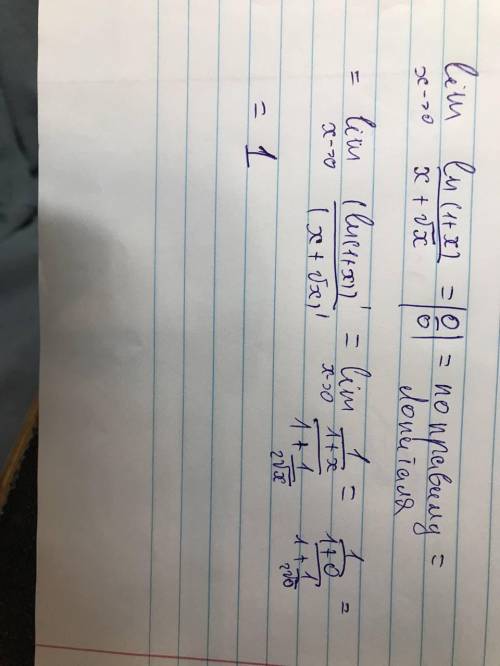 lim x->0 ln(1+x) / (x + √x) = |0/0| = по правилу Лопиталя =
= lim x->0 (ln(1+x))' / (x + √x)' = lim x->0 (1/(1+x)) / (1 + 1/(2√x)) = (1/(1+0)) / (1 + 1/(2√0)) =
= 1